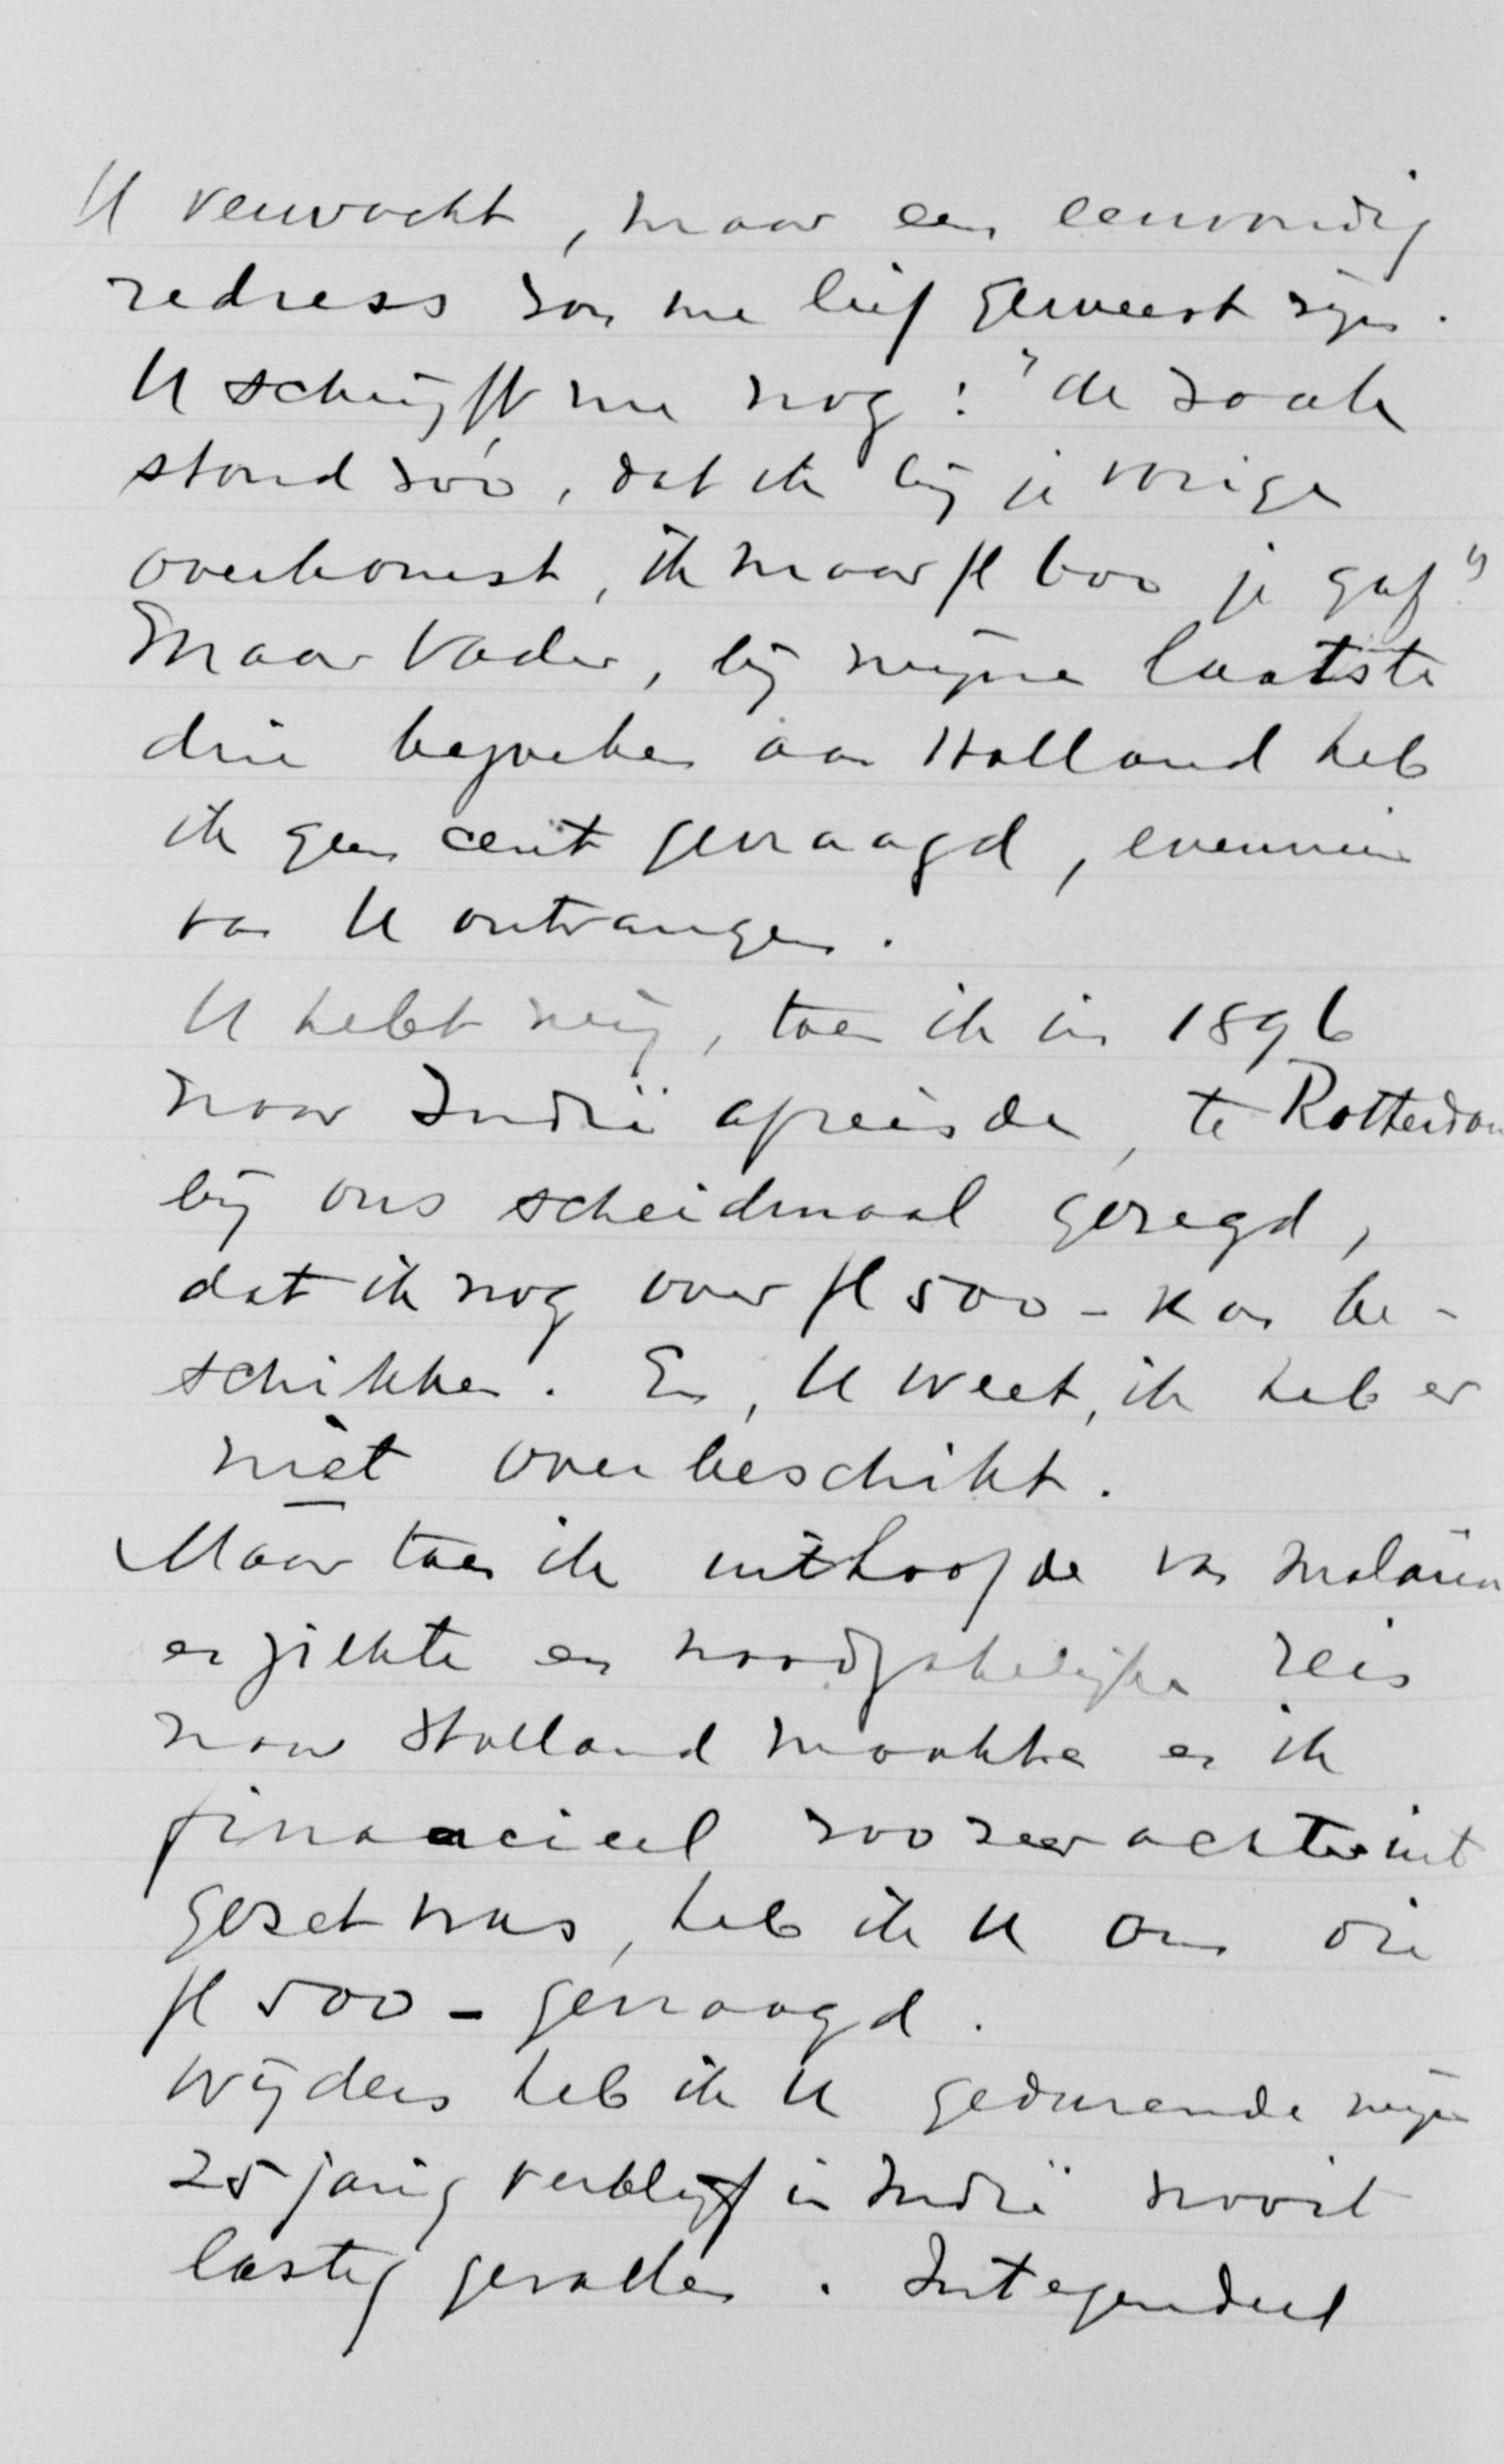 U verwacht, maar een eenvoudig
redress zou me lief geweest zijn.
U schrijft me nog: "de zaak
stond zóó, dat ik bij je vorige
overkomst, ik maar fl 600 je gaf."
Maar Vader, bij mijne laatste
drie bezoeken aan Holland heb
ik geen cent gevraagd, evenmin
van U ontvangen.
U hebt mij, toen ik in 1896
naar Indië afreisde, te Rotterdam
bij ons scheidmaal gezegd,
dat ik nog over fl 500 - kon be-
schikken. En, U weet, ik heb er
niet over beschikt.
Maar toen ik uithoofde van malaria
en ziekte en noodzakelijke reis
naar Holland maakte en ik
financieel zoo zeer achteruit
gezet was, heb ik U om die
fl 500 - gevraagd.
Wijders heb ik U gedurende mijn
25 jarig verblijf in Indië nooit
lastig gevallen. Integendeel